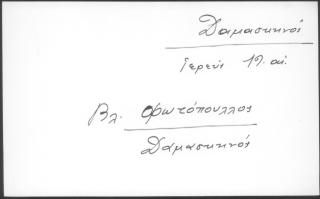 Δαμασκηνός
Ιερεύς 19. αι.
Βλ. Φωτόπουλλος
Δαμασκηνός